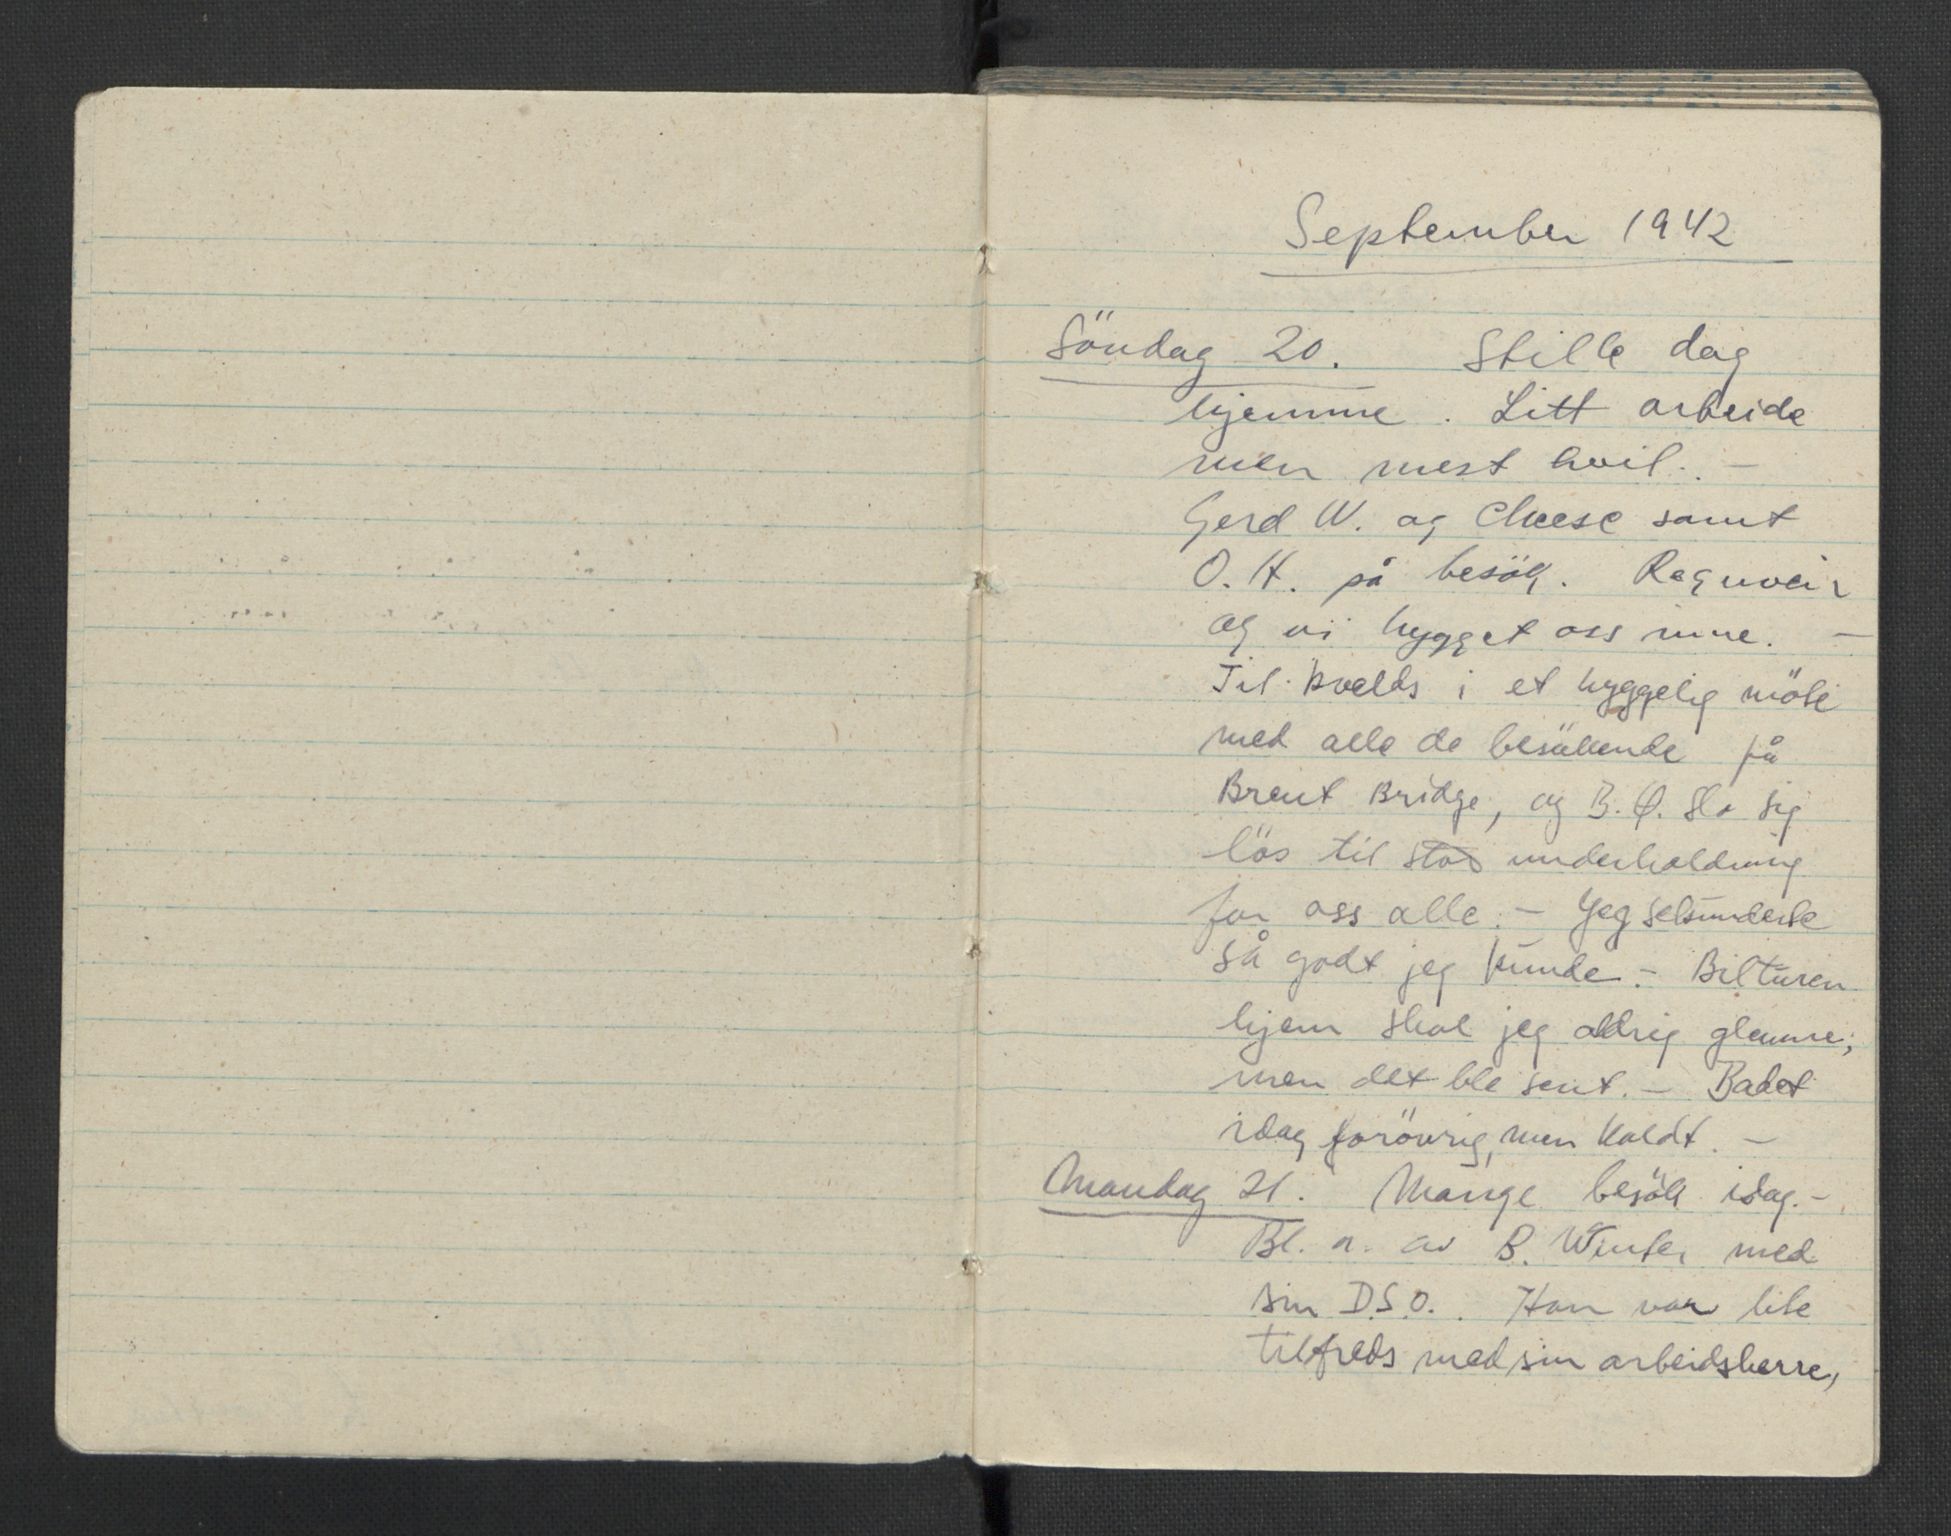 September 1942
Söndag 20. Stille dag
hjemme. Litt arbeide
men mest hvil. –
Gerd W. og Cheese samt
O. H. på besök. Regnveir
og vi hygget oss inne. –
Til kvelds i et hyggelig möte
med alle de besökende på
Brent Bridge, og B. Ø. slo sig
lös til stor underholdning
for oss alle. – Jeg
så godt jeg kunde. – Bilturen
hjem skal jeg aldrig glemme;
men det ble sent. – Badet
idag forövrig, men kaldt. –
Mandag 21. Mange besök idag. –
Bl. a. av B. Winter med
sin D.S.O. . Han var lite
tilfreds med sin arbeidsherre,